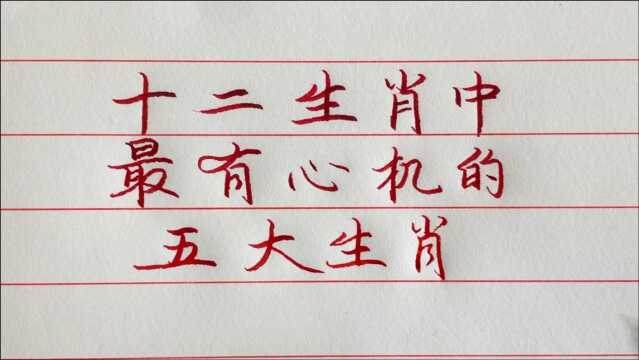 十二生肖中
最有心机的
五大生肖